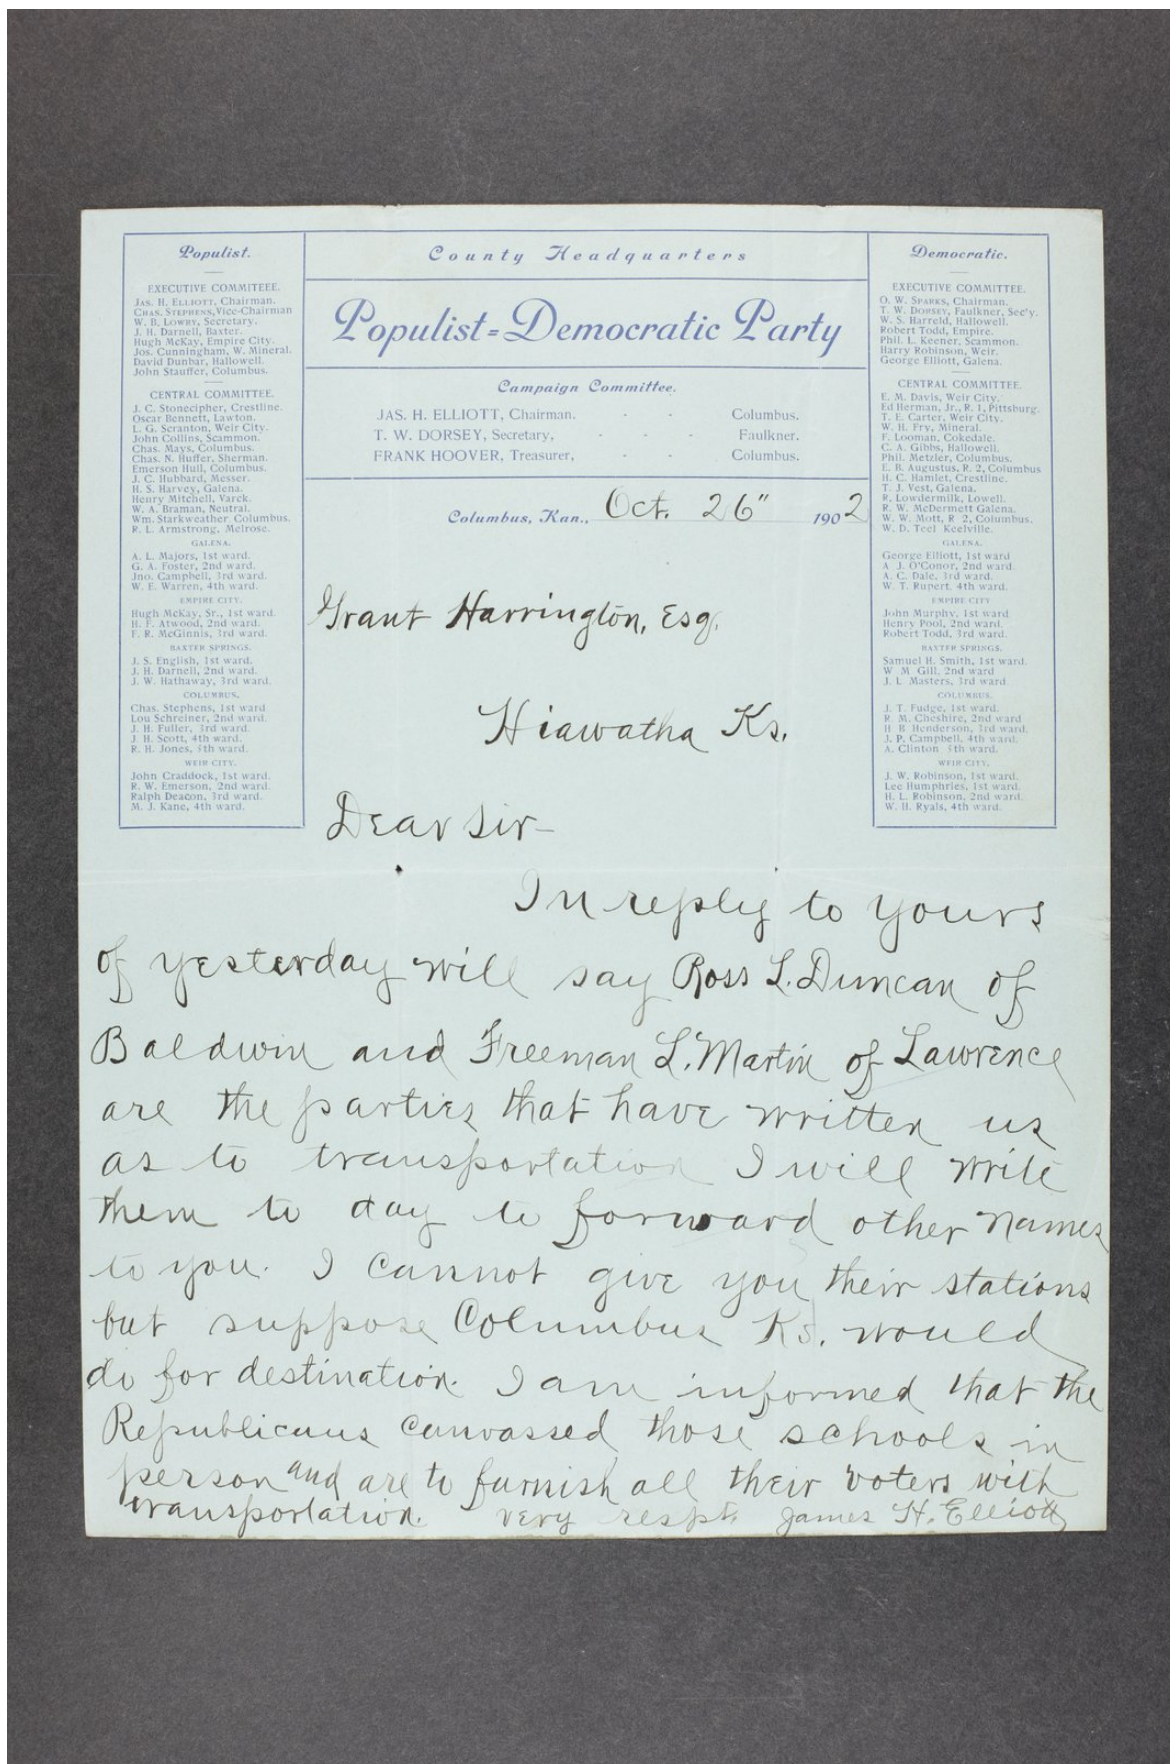 Populist.
EXECUTIVE COMMITEEE.
JAS. H. ELLIOTT, Chairman.
CHAS. STEPHENS, Vice-Chairman
W. B. LOWRY, Secretary.
J. H. Darnell, Baxter.
Hugh McKay, Empire City.
Jos. Cunningham, W. Mineral.
David Dunbar, Hallowell.
John Stauffer, Columbus.
CENTRAL COMMITTEE.
J. C. Stonecipher, Crestline.
Oscar Bennett, Lawton.
L. G. Scranton, Weir City.
John Collins, Scammon.
Chas. Mays, Columbus.
Chas. N. Huffer, Sherman.
Emerson Hull, Columbus.
J. C. Hubbard, Messer.
H. S. Harvey, Galena.
Henry Mitchell, Varck.
W. A. Braman, Neutral.
Wm. Starkweather Columbus.
R. L. Armstrong, Melrose.
GALENA.
A. L. Majors, 1st ward.
G. A. Foster, 2nd ward.
Jno. Campbell, 3rd ward.
W. E. Warren, 4th ward.
EMPIRE CITY.
Hugh McKay, Sr., 1st ward.
H. F. Atwood, 2nd ward.
F. R. McGinnis, 3rd ward.
BAXTER SPRINGS.
J. S. English, 1st ward.
J. H. Darnell, 2nd ward.
J. W. Hathaway, 3rd ward.
COLUMBUS.
Chas. Stephens, 1st ward.
Lou Schreiner, 2nd ward.
J. H. Fuller, 3rd ward.
J. H. Scott, 4th ward.
R. H. Jones, 5th ward.
WEIR CITY.
John Craddock, 1st ward.
R. W. Emerson, 2nd ward.
Ralph Deacon, 3rd ward.
M. J. Kane, 4th ward.
County Headquarters
Populist=Democratic Party
Campaign Committee.
JAS. H. ELLIOTT, Chairman. - - Columbus.
T. W. DORSEY, Secretary, - - - Faulkner.
FRANK HOOVER, Treasurer, - - Columbus.
Democratic.
EXECUTIVE COMMITTEE.
O. W. SPARKS, Chairman.
T. W. DORSEY, Faulkner, Sec'y.
W. S. Harreld, Hallowell.
Robert Todd, Empire.
Phil. L. Keener, Scammon.
Harry Robinson, Weir.
George Elliott, Galena.
CENTRAL COMMITTEE.
E. M. Davis, Weir City.
Ed Herman, Jr., R. 1, Pittsburg.
T. E. Carter, Weir City.
W. H. Fry, Mineral.
F. Looman, Cokedale.
C. A. Gibbs, Hallowell.
Phil. Metzler, Columbus.
E. B. Augustus, R. 2, Columbus
H. C. Hamlet, Crestline.
T. J. Vest, Galena.
R. Lowdermilk, Lowell.
R. W. McDermett Galena.
W. W. Mott, R 2, Columbus.
W. D. Teel Keelville.
GALENA.
George Elliott, 1st ward
A J. O'Conor, 2nd ward.
A. C. Dale, 3rd ward.
W. T. Rupert. 4th ward.
EMPIRE CITY
John Murphy, 1st ward
Henry Pool, 2nd ward.
Robert Todd, 3rd ward.
BAXTER SPRINGS.
Samuel H. Smith, 1st ward.
W M Gill, 2nd ward
J. L Masters, 3rd ward
COLUMBUS.
J. T. Fudge, 1st ward.
R. M. Cheshire, 2nd ward
H B Henderson, 3rd ward.
J. P. Campbell, 4th ward.
A. Clinton 5th ward.
WEIR CITY.
J. W. Robinson, 1st ward.
Lee Humphries, 1st ward.
H. L. Robinson, 2nd ward.
W. H. Ryals, 4th ward.
Columbus, Kan., Oct. 26" 1902
Grant Harrington, Esq.
Hiawatha Ks.
Dear Sir—
In reply to yours
of yesterday will say Ross L. Duncan of
Baldwin and Freeman L. Martin of Lawrence
are the parties that have written us
as to transportation I will write
them to day to forward other names
to you. I cannot give you their stations
but suppose Columbus Ks. would
do for destination. I am informed that the
Republicans canvassed those schools in
person and are to furnish all their voters with
transportation. very respt. James H. Elliott